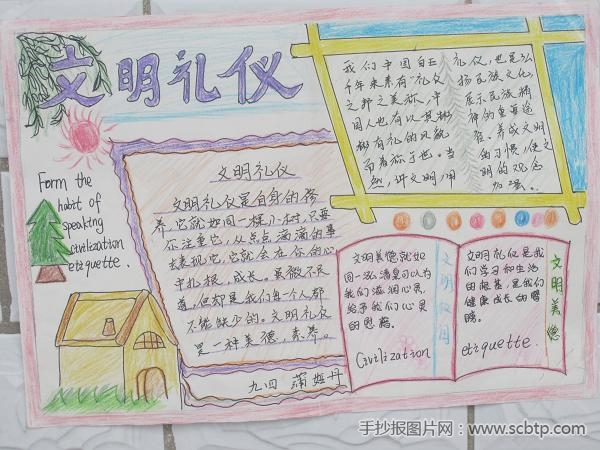 文明礼仪
Form the
habit of
speaking
civilization
etiquette.
文明礼仪
文明礼仪是自身的修
养,它就如同一棵小树,只要
你注重它,从点点滴滴的事
去表现它,它就会在你的心
中扎根,成长。虽微不足
道,但却是我们每个人都
不能缺少的。文明礼仪
是一种美德,素养。
九四
我们中国自五
千年来素有"礼仪
之邦"之美称,中
国人也有以其彬
彬有礼的风貌
而著称于世。当
然,讲文明,用
礼仪,也是弘
扬民族文化,
展示民族精
神的重要途
径,养成文明
的习惯,使文
明的观念
加强。
文明美德就如
同一泓清泉可以为
我们滋润心灵,
给予我们心灵
的慰藉。
Civilization
文明校园
文明礼仪是我
们学习和生活
的根基,是我们
健康成长的臂
膀。
etiquette.
文明美德
手抄报图片网:www.scbtp.com